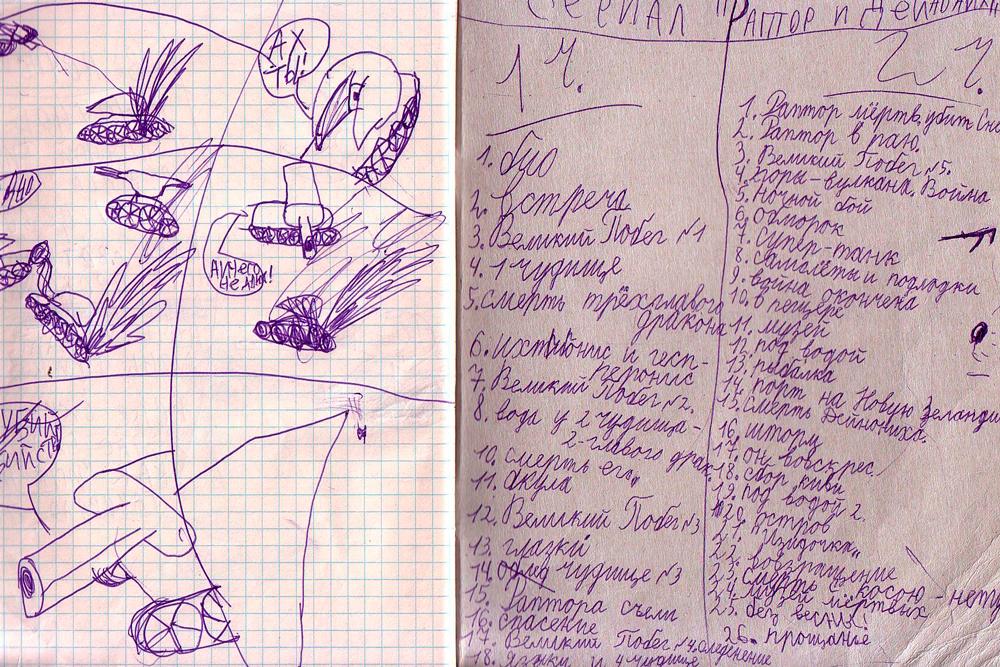 АХ
ТЫ!
АНО
АНЧЕГО
НЕ
УБИЙ
СЕРИАЛ РАПТОР И ДЕЙНОНИХ
1 Ч.
1. бұо
2. встреча
3. Великий Побег №1
4. 1 чудище
5. смерть трёхглавого
дракона
6. ихтиорнис и гесп-
перорнис
7. Великий Побег №2.
8. вода у 2 чудища-
2-главого драк.
10. смерть его,
11. Акула
12. Великий Побег №3
13. глазки
14. чудище №3
15. Раптора съели
16. спасение
17. Великий Побег №4. оледенение
18. и 4 чудище
2 Ч.
1. Раптор мёртв, убит
2. Раптор в раю
3. Великий Побег №5.
4. Хоры-вулкана. Война
5. Ночной бой
6. Обморок
7. Супер-танк
8. самолёты и подлодки
9. война окончена
10. в пещере
11. музей
12. под водой
13. рыбалка
14. порт на Новую Зеланди
15. Смерть Дейнониха.
16. шторм
17. он воскрес
18. сбор киви
19. под водой 2.
20. остров
21.
22. возвращение
23. смерть с косою - нет
24. музей мёртвых
25. без весник!
26. прощание